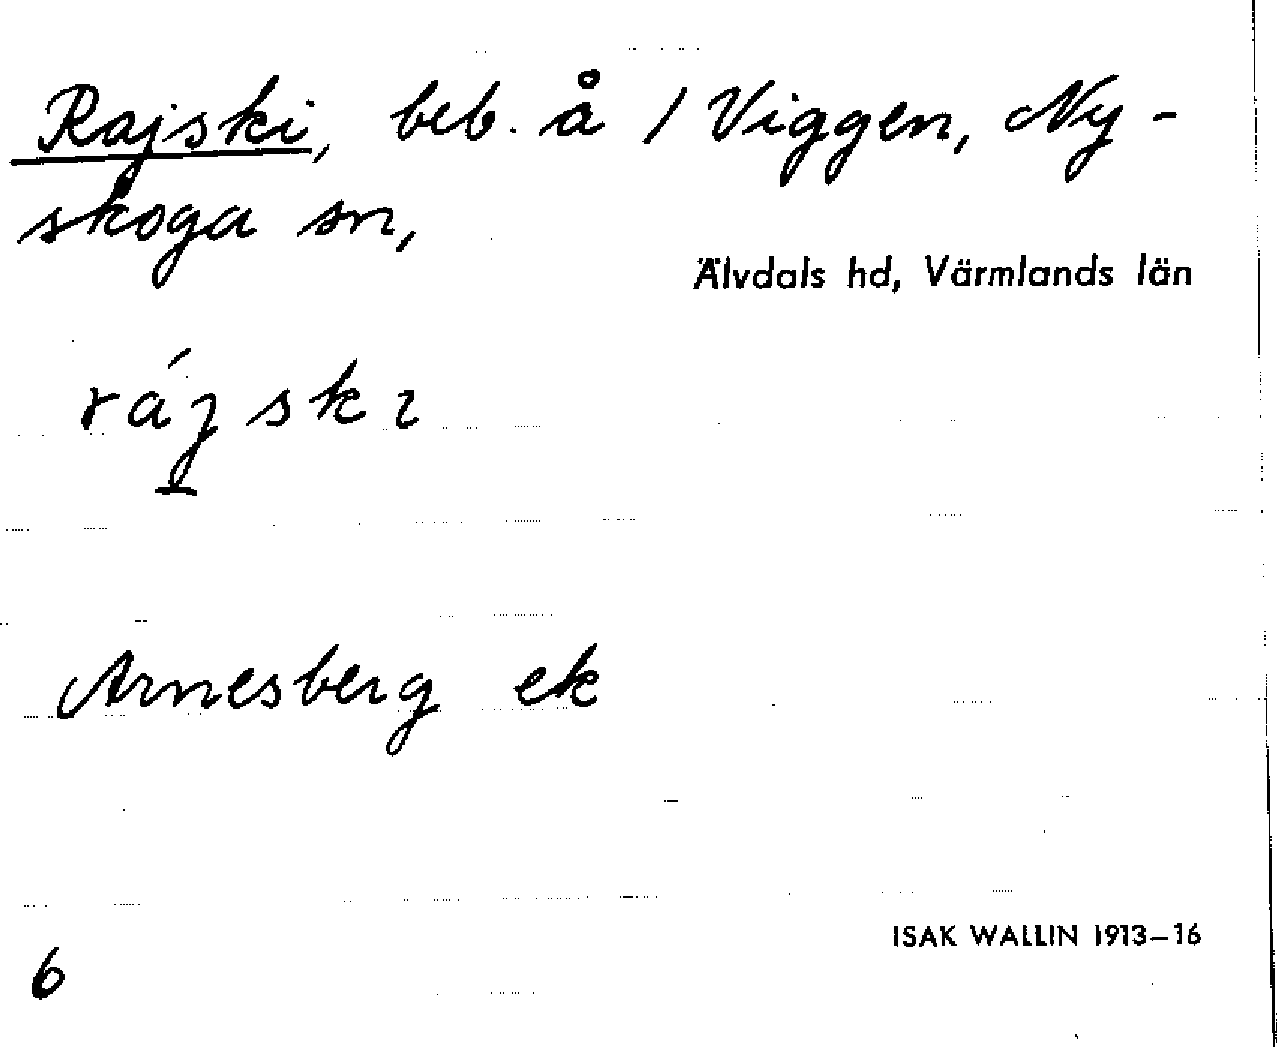 Rajski, beb. å 1 Viggen, Ny-
skoga sn,
Älvdals hd, Värmlands län
rájskɩ
Arnesberg ek
ISAK WALLIN 1913–16
6